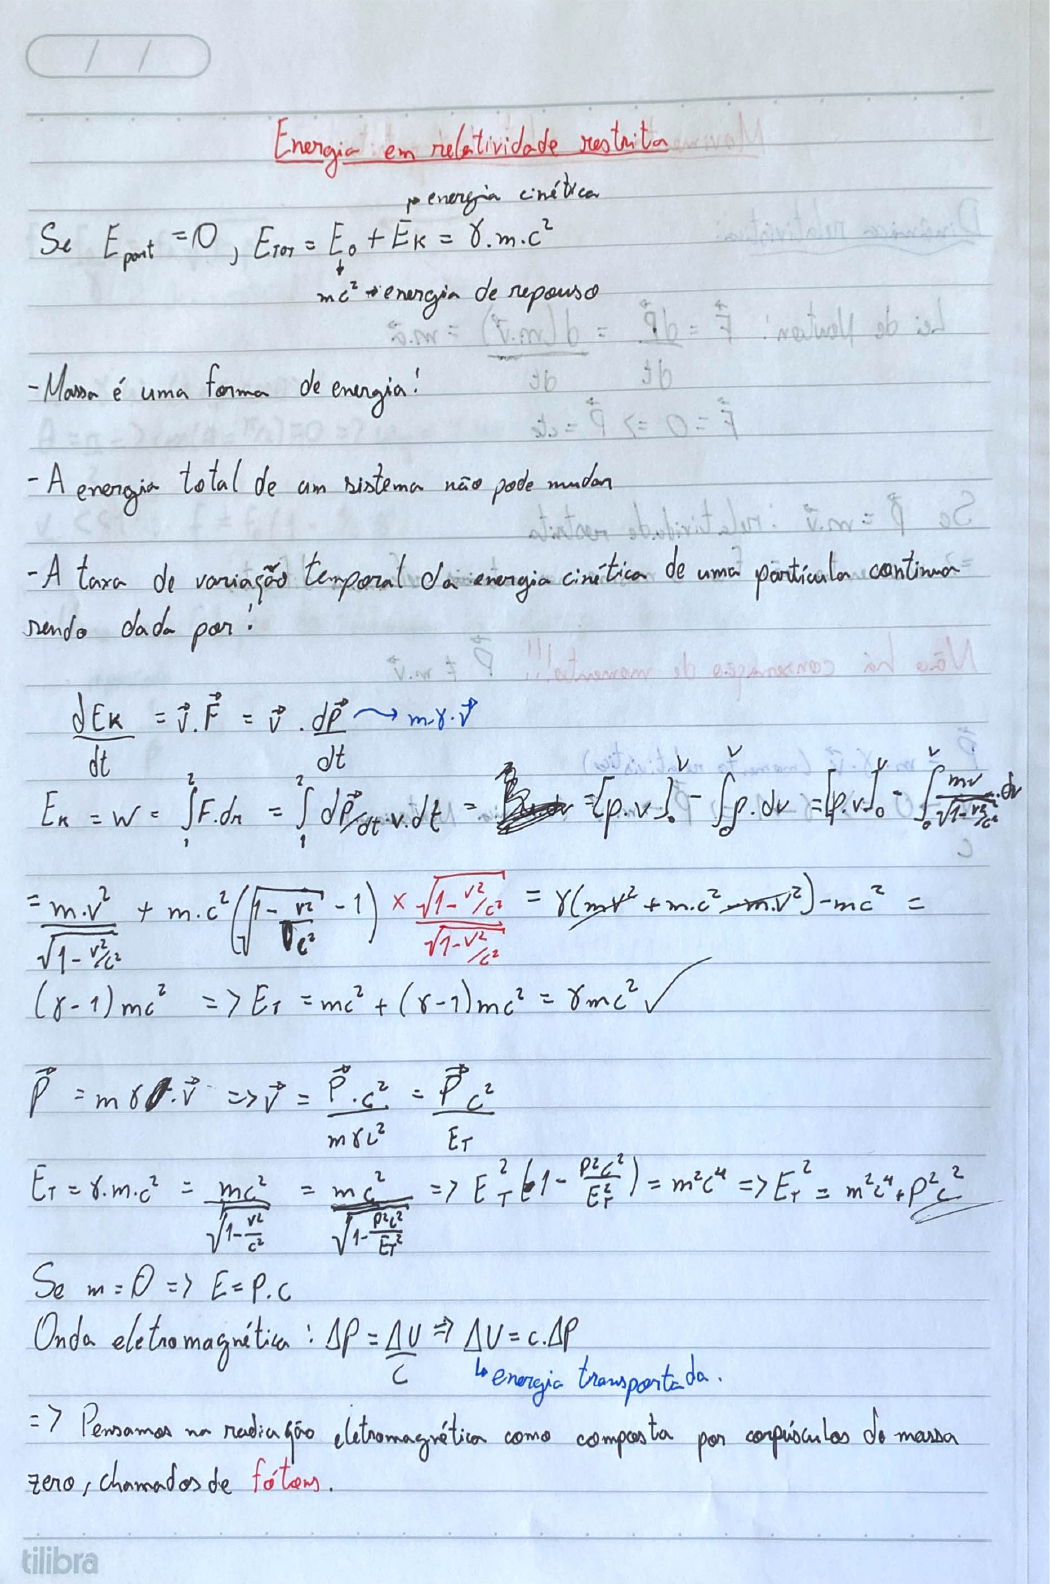 / /
Energia em relatividade restrita
→ energia cinética
Se E_pot = 0, E_TOT = E_0 + E_K = γ.m.c²
↓
mc² → energia de repouso
- Massa é uma forma de energia!
- A energia total de um sistema não pode mudar
- A taxa de variação temporal da energia cinética de uma partícula continua
sendo dada por:
dE_K/dt = v⃗.F⃗ = v⃗.dp⃗/dt → m.γ.v⃗
E_K = W = ∫₁² F.dr = ∫₁² dp/dt.v.dt = [p.v]₀ᵛ - ∫₀ᵛ p.dv = [p.v]₀ᵛ - ∫₀ᵛ mv/√(1-v²/c²).dv
= m.v²/√(1-v²/c²) + m.c²(√(1-v²/c²) - 1) × √(1-v²/c²)/√(1-v²/c²) = γ(mv² + m.c² - m.v²) - mc² =
(γ-1)mc² => E_T = mc² + (γ-1)mc² = γmc² ✓
P⃗ = mγ.v⃗ => v⃗ = P⃗.c²/mγc² = P⃗c²/E_T
E_T = γ.m.c² = mc²/√(1-v²/c²) = mc²/√(1-P²c²/E_T²) => E_T²(1 - P²c²/E_T²) = m²c⁴ => E_T² = m²c⁴ + P²c²
Se m = 0 => E = P.c
Onda eletromagnética : ΔP = ΔU/c => ΔU = c.ΔP
↳ energia transportada.
=> Pensamos na radiação eletromagnética como composta por corpúsculos de massa
zero, chamados de fótons.
tilibra